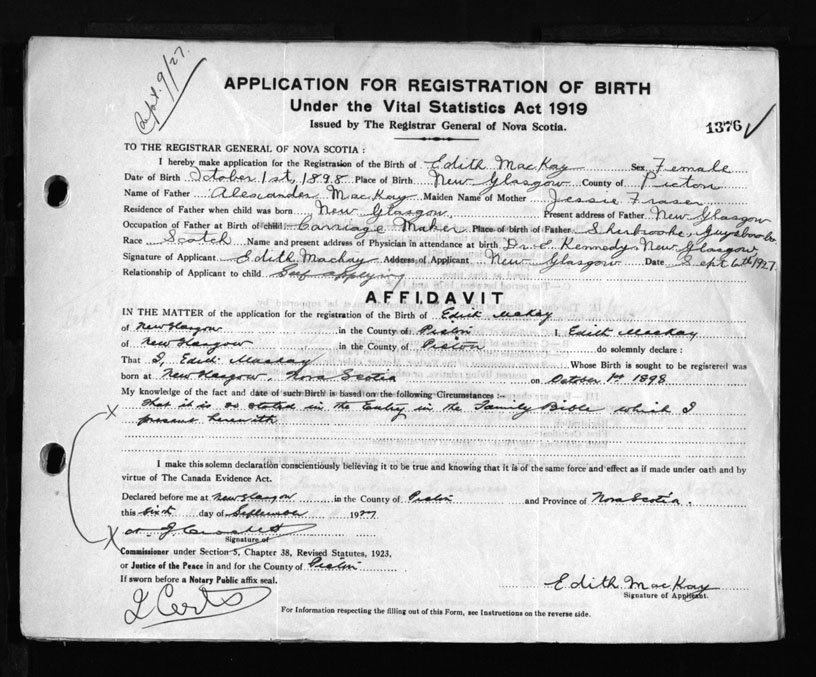 Sept. 9/27.
APPLICATION FOR REGISTRATION OF BIRTH
Under the Vital Statistics Act 1919
Issued by The Registrar General of Nova Scotia.
1376
TO THE REGISTRAR GENERAL OF NOVA SCOTIA :
I hereby make application for the Registration of the Birth of Edith MacKay Sex Female
Date of Birth October 1st, 1898 Place of Birth New Glasgow County of Pictou
Name of Father Alexander MacKay Maiden Name of Mother Jessie Fraser
Residence of Father when child was born New Glasgow Present address of Father New Glasgow
Occupation of Father at Birth of child Carriage Maker Place of birth of Father Sherbrooke, Guysboro Co.
Race Scotch Name and present address of Physician in attendance at birth Dr. E Kennedy New Glasgow
Signature of Applicant Edith Mackay Address of Applicant New Glasgow Date Sept 6th 1927
Relationship of Applicant to child Self applying
AFFIDAVIT
IN THE MATTER of the application for the registration of the Birth of Edith MacKay
of New Glasgow in the County of Pictou I, Edith MacKay
of New Glasgow in the County of Pictou do solemnly declare :
That I, Edith MacKay Whose Birth is sought to be registered was
born at New Glasgow, Nova Scotia on October 1st 1898
My knowledge of the fact and date of such Birth is based on the following Circumstances :-
X That it is as stated in the Entry in the Family Bible which I
present herewith
I make this solemn declaration conscientiously believing it to be true and knowing that it is of the same force and effect as if made under oath and by
virtue of The Canada Evidence Act.
Declared before me at New Glasgow in the County of Pictou and Province of Nova Scotia.
this sixth day of September 1927
X
Signature of
Commissioner under Section 5, Chapter 38, Revised Statutes, 1923,
or Justice of the Peace in and for the County of Pictou
If sworn before a Notary Public affix seal.
Edith MacKay
Signature of Applicant.
For Information respecting the filling out of this Form, see Instructions on the reverse side.